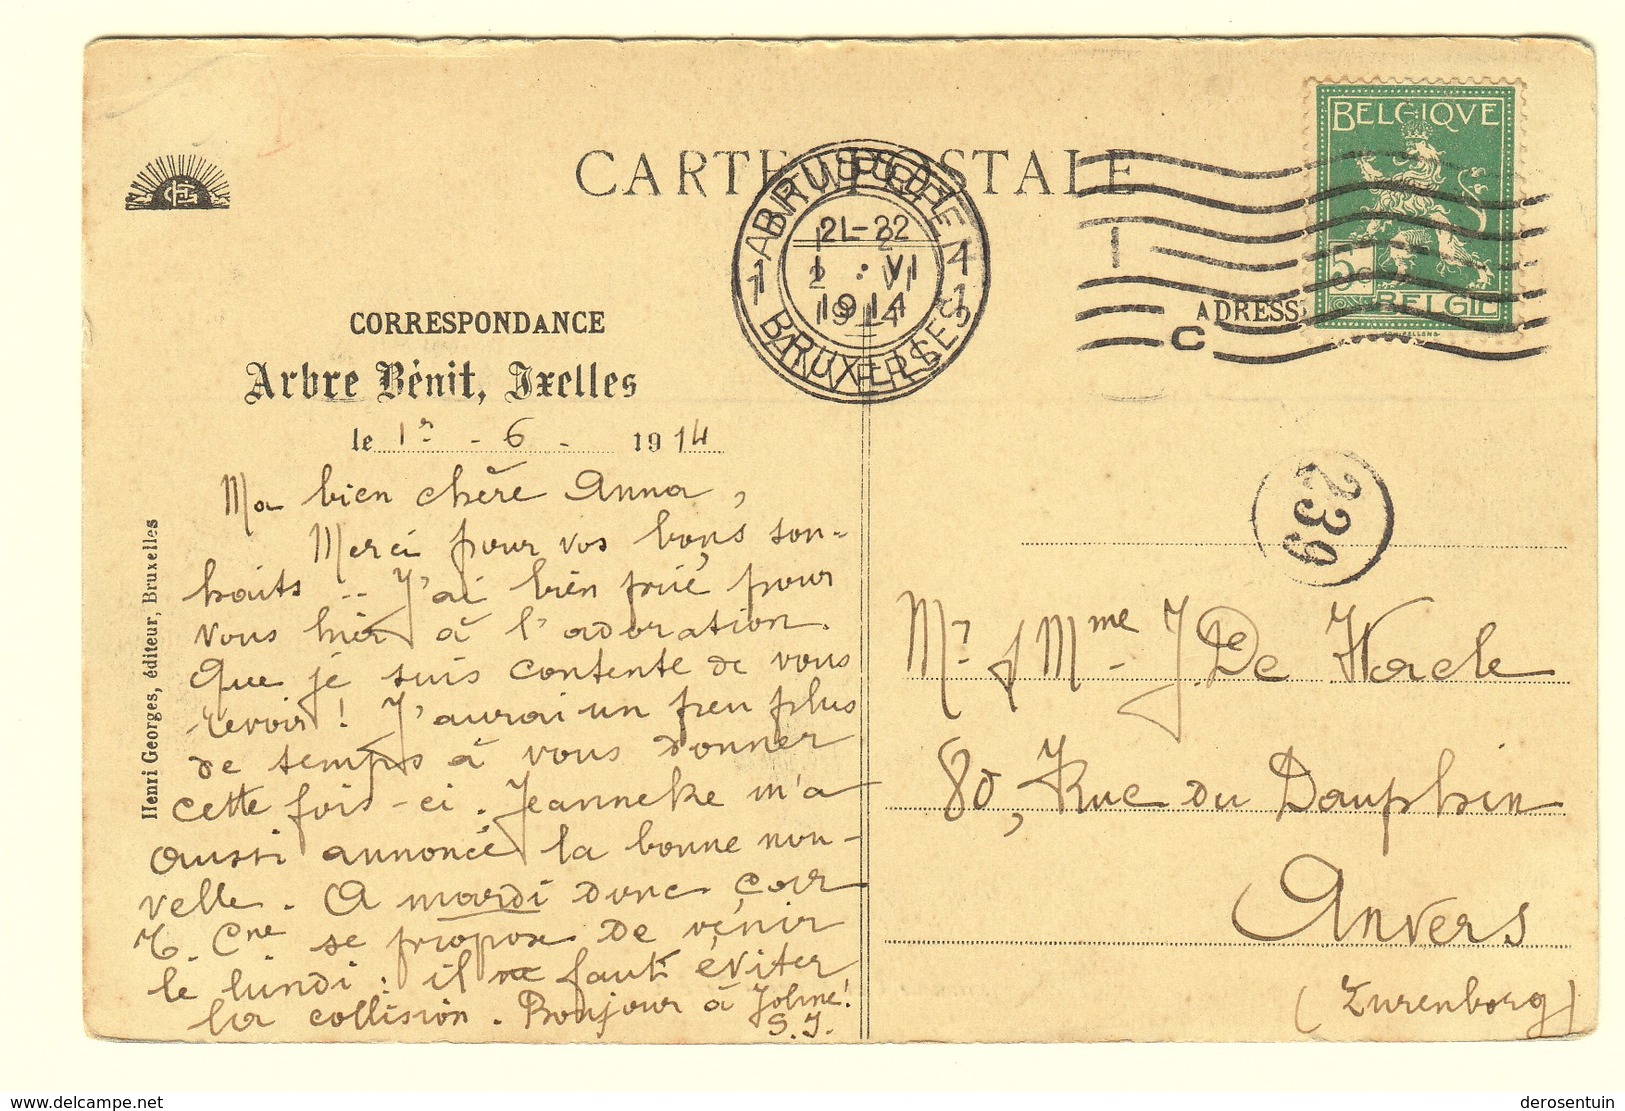 CARTE POSTALE
BELGIQUE
5c
BELGIË
BRUXELLES
21-22
1 · VI
1914
CORRESPONDANCE
Arbre Bénit, Ixelles
le 1r - 6 - 1914
Ma bien chère Anna,
Merci pour vos bons sou-
haits .. J'ai bien prié pour
vous hier à l'adoration.
Que je suis contente de vous
revoir ! J'aurai un peu plus
de temps à vous donner
cette fois-ci. Jeanneke m'a
aussi annoncé la bonne nou-
velle. A mardi donc car
T. Cne se propose de venir
le lundi : il faut éviter
la collision. Bonjour à
S. J.
Henri Georges, éditeur, Bruxelles
ADRESS
C
239
Mr & Mme J. De
80, Rue du Dauphin
Anvers
(Zurenborg)
delcampe.net
derosentuin